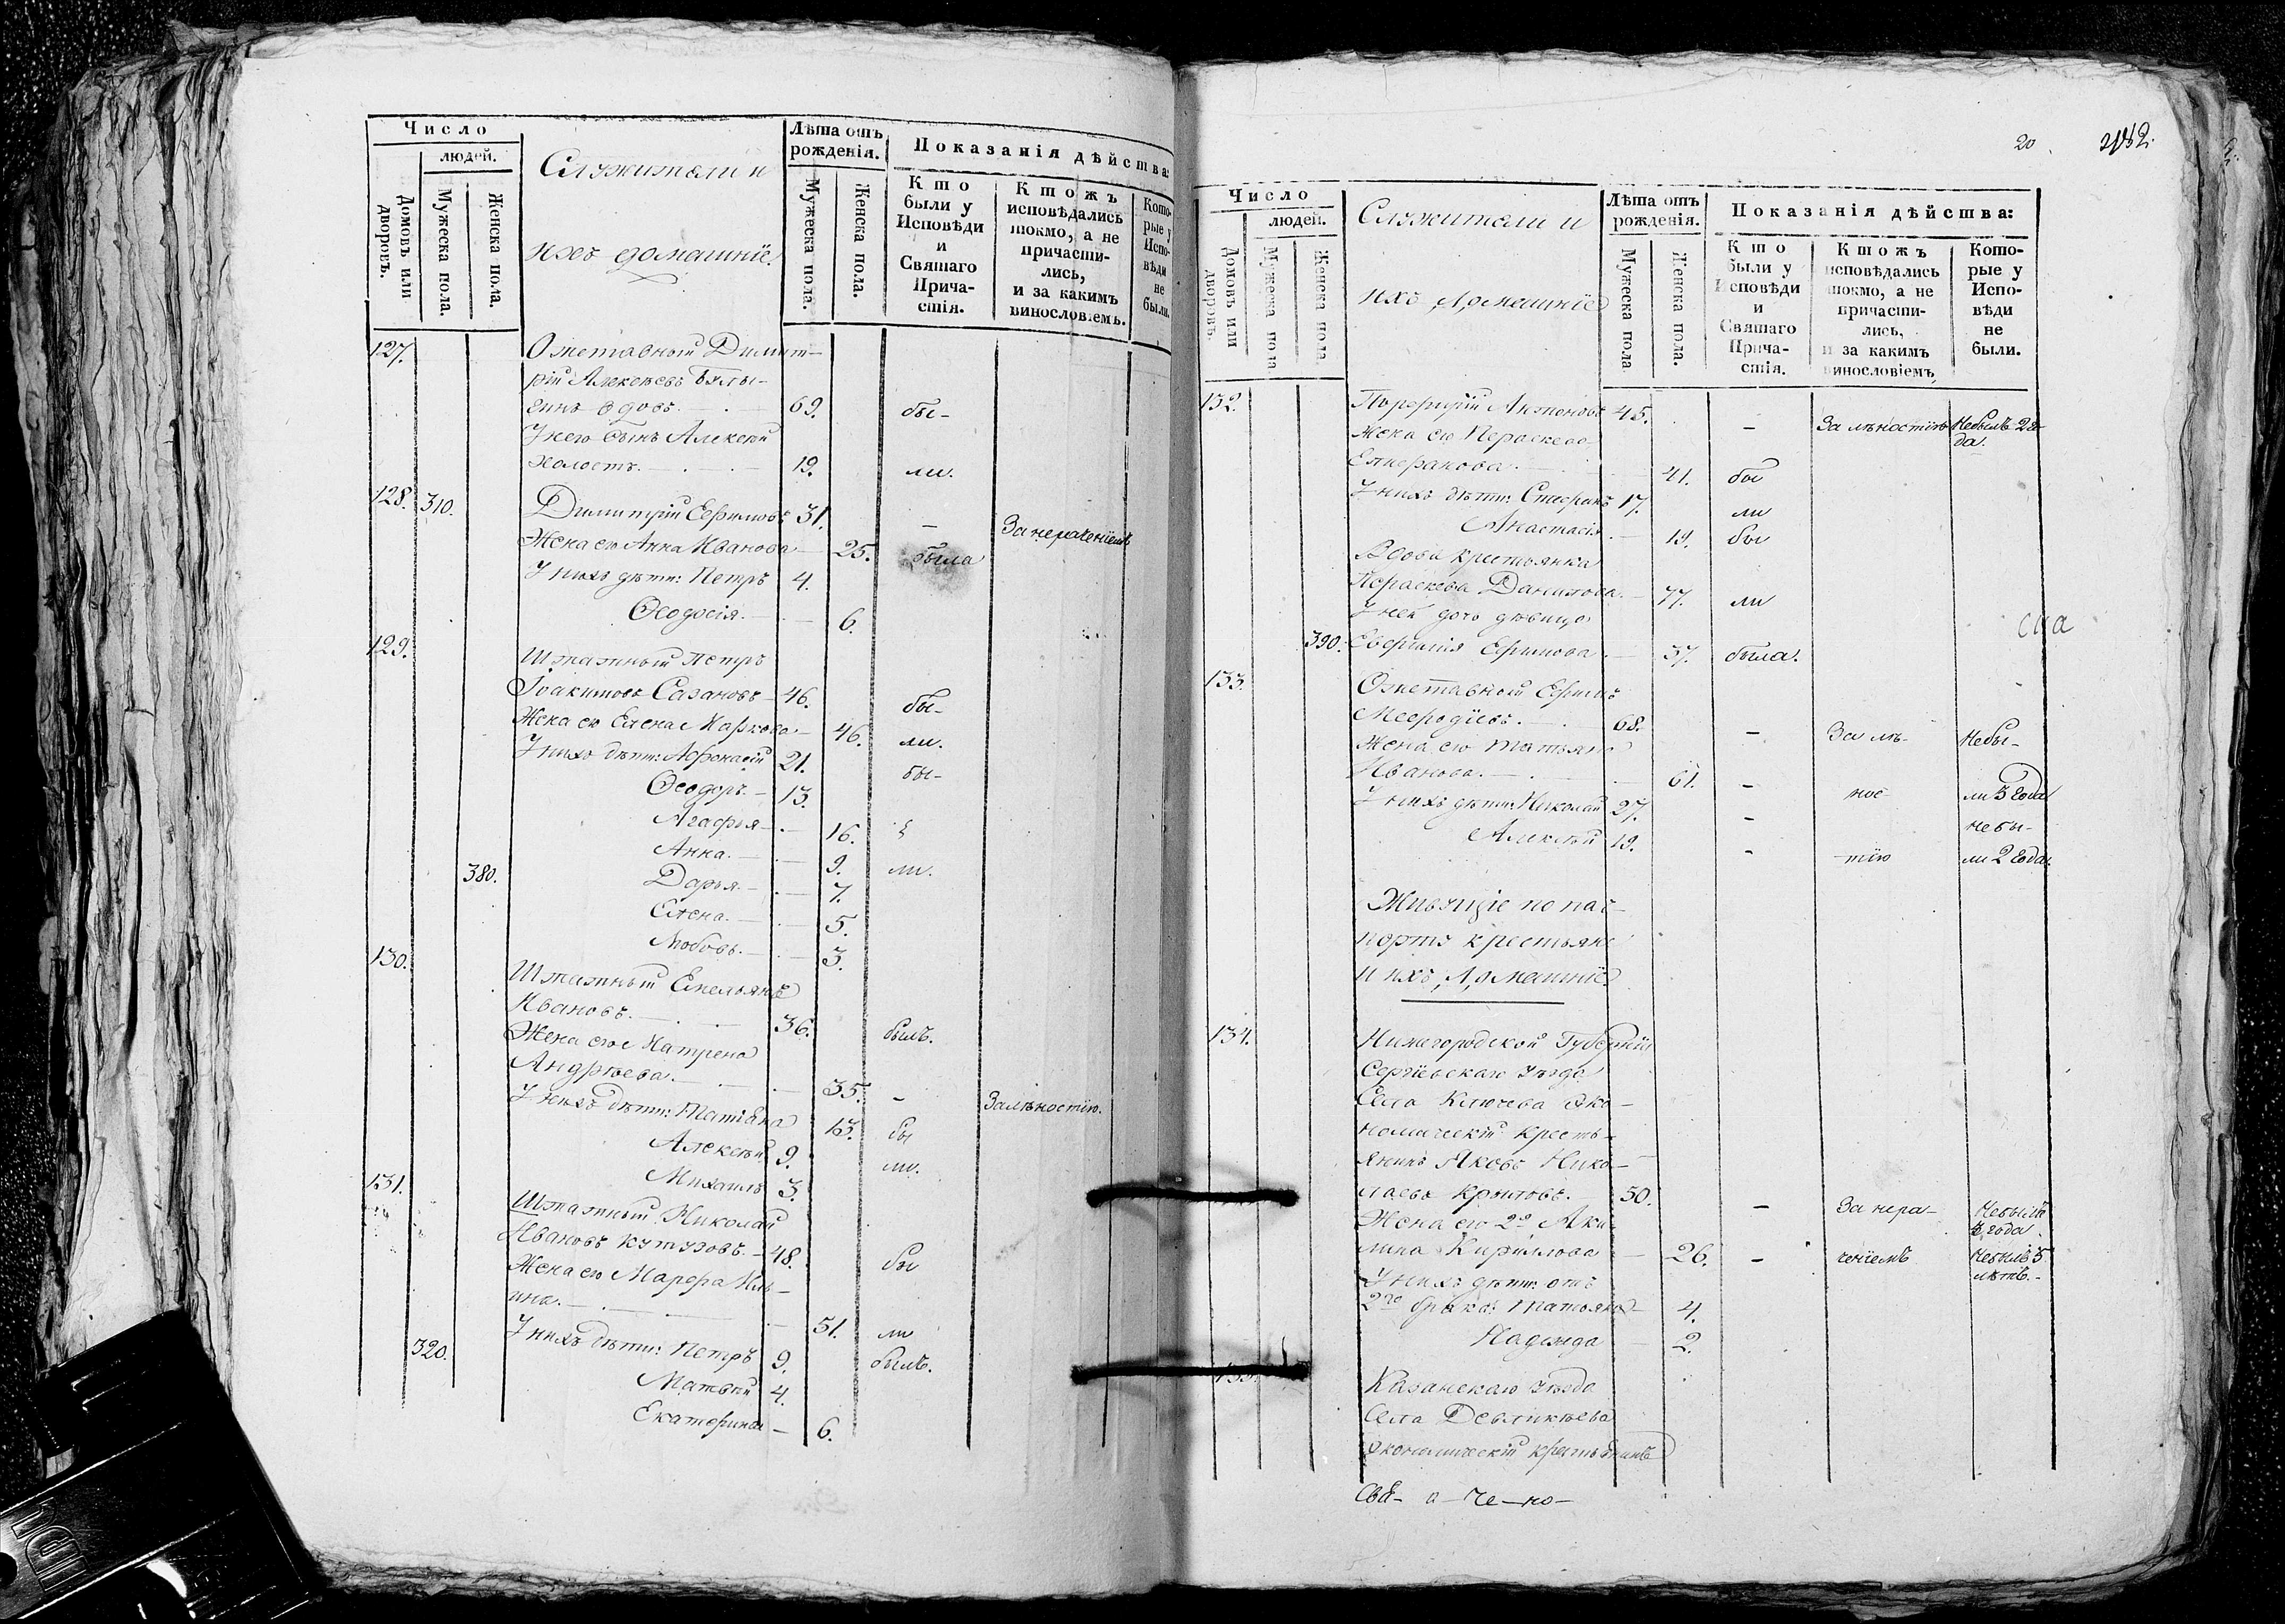 Число
людей.
Домовъ или дворовъ.
Мужеска пола.
Женска пола.
Служители и
ихъ домашніе.
Лѣта отъ рожденія.
Мужеска пола.
Женска пола.
Показанія дѣйства:
Кто были у Исповѣди и Святаго Причастія.
Ктожъ исповѣдались токмо, а не причастились, и за какимъ винословіемъ.
Которые у Исповѣди не были.
127. Отставной Димит-
рій Алексѣевъ
вдовъ. 69. бы-
У него сынъ Алексѣй
холостъ. 19. ли.
128. 310. Димитрій Ефимовъ 31. – За нераченіемъ
Жена его Анна Иванова 25. была
У нихъ дѣти: Петръ 4.
Ѳеодосія. 6.
129. Штатный Петръ
Іоакимовъ Сазановъ 46. бы-
Жена его Елена Маркова 46. ли.
У нихъ дѣти: Афонасій 21. бы-
Ѳеодоръ. 13.
Агафья 16.
Анна. 9. ли.
380. Дарья. 7.
Елена. 5.
Любовь. 3.
130. Штатный Емельянъ
Ивановъ. 36. былъ.
Жена его Матрена
Андрѣева. 35. – За лѣностію.
У нихъ дѣти: Татіяна 13. бы
Алексѣй 9. ли.
Михаилъ 3.
131. Штатный Николай
Ивановъ Кутузовъ. 48. бы
Жена его Марфа Иль-
ина. 51. ли
320. У нихъ дѣти: Петръ 9. былъ.
Матвѣй 4.
Екатерина 6.
20
Число
людей.
Домовъ или дворовъ.
Мужеска пола
Женска пола
Служители и
ихъ домашніе
Лѣта отъ рожденія.
Мужеска пола
Женска пола.
Показанія дѣйства:
Кто были у Исповѣди и Святаго Причастія.
Ктожъ исповѣдались токмо, а не причастились, и за какимъ винословіемъ
Которые у Исповѣди не были.
132. Порфирій Антоновъ 45. – За лѣностію Небылъ 2 го-
да.
Жена его Параскева
41. бы
У нихъ дѣти: Стефанъ 17. ли
Анастасія 19. бы
Вдова крестьянка
Параскева Данилова. 77. ли
У ней дочь дѣвица
390. Евфимія Ефимова. 37. была.
133. Отставной Ефимъ
Мефодіевъ. 68. – За лѣ- Небы-
Жена его Татьяна
Иванова. 61. – нос- ли 3 года
У нихъ дѣти: Николай 27. – небы-
Алексѣй 19. – тію ли 2 года.
Живущіе по пас-
порту крестьяне
и ихъ домашніе
134. Нижегородской Губерніи
Сергіевскаго уѣзда
Села Ключева Эко-
номическій кресть-
янинъ Яковъ Нико-
лаевъ Крыловъ. 50. – За нера- Небылъ
года.
Жена его 2я Аку-
лина Кириллова 26. – ченіемъ Небылъ 5
лѣтъ.
У нихъ дѣти: отъ
2го брака: Татьяна 4.
Надежда 2.
135. Казанскаго уѣзда
Села Девликѣева
Экономическій крестьянинъ